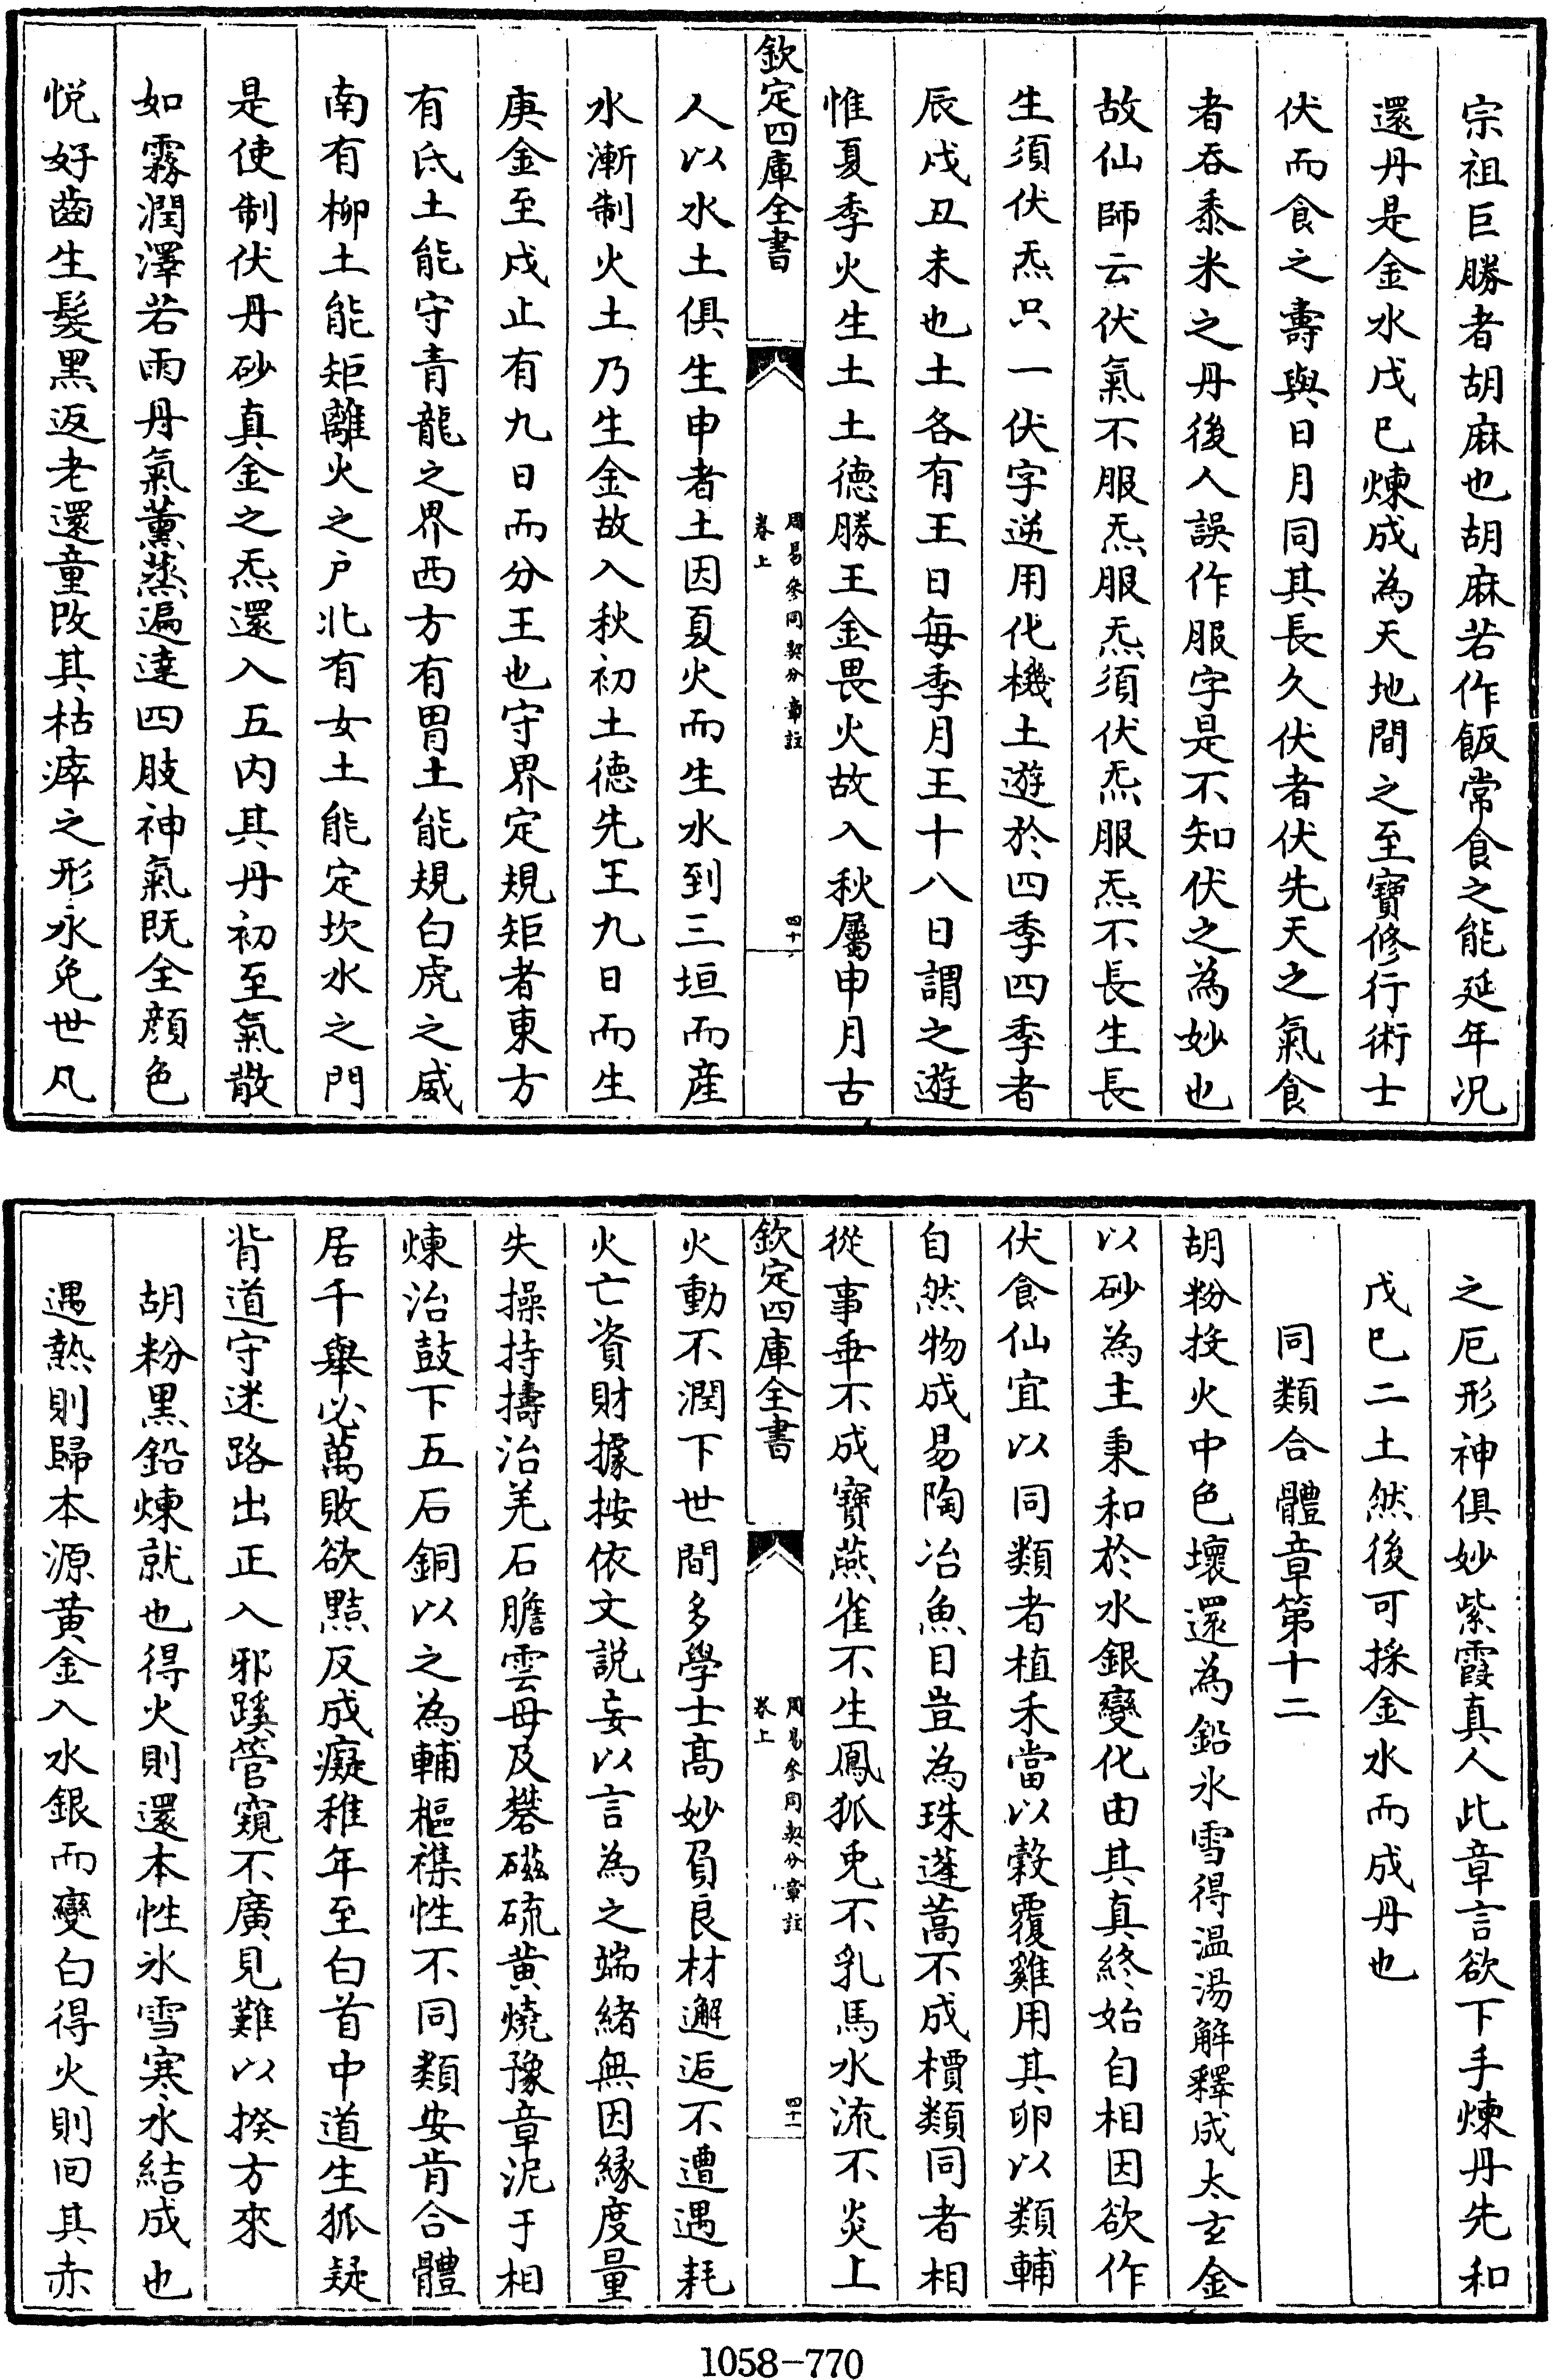 宗祖巨勝者胡麻也胡麻若作飯常食之能延年况
還丹是金水戊巳煉成為天地間之至寶修行術士
伏而食之壽與日月同其長久伏者伏先天之氣食
者吞黍米之丹後人誤作服字是不知伏之為妙也
故仙師云伏氣不服炁服炁須伏炁服炁不長生長
生須伏炁只一伏字逆用化機土遊於四季四季者
辰戌丑未也土各有王日每季月王十八日謂之遊
惟夏季火生土土德勝王金畏火故入秋屬申月古
欽定四庫全書
周易參同契分章註
卷上
四十
人以水土俱生申者土因夏火而生水到三垣而産
水漸制火土乃生金故入秋初土德先王九日而生
庚金至戌止有九日而分王也守界定規矩者東方
有氐土能守青龍之界西方有胃土能規白虎之威
南有柳土能矩離火之户北有女土能定坎水之門
是使制伏丹砂真金之炁還入五内其丹初至氣散
如霧潤澤若雨丹氣薰蒸遍達四肢神氣既全顔色
悦好齒生髮黑返老還童改其枯瘁之形永免世凡
之厄形神俱妙紫霞真人此章言欲下手煉丹先和
戊巳二土然後可採金水而成丹也
同類合體章第十二
胡粉投火中色壞還為鉛氷雪得温湯解釋成太玄金
以砂為主秉和於水銀變化由其真終始自相因欲作
伏食仙宜以同類者植禾當以榖覆雞用其卵以類輔
自然物成易陶冶魚目豈為珠蓬蒿不成檟類同者相
從事乖不成寳燕雀不生鳳狐兔不乳馬水流不炎上
欽定四庫全書
周易參同契分章註
卷上
四十一
火動不潤下世間多學士高妙負良材邂逅不遭遇耗
火亡資財據按依文説妄以言為之端緒無因緣度量
失操持擣治羌石膽雲母及礬磁硫黄燒豫章泥于相
煉治鼓下五石銅以之為輔樞襍性不同類安肯合體
居千舉必萬敗欲黠反成癡稚年至白首中道生狐疑
背道守迷路出正入邪蹊管窺不廣見難以揆方來
胡粉黑鉛煉就也得火則還本性氷雪寒水結成也
遇熱則歸本源黄金入水銀而變白得火則回其赤
1058-770